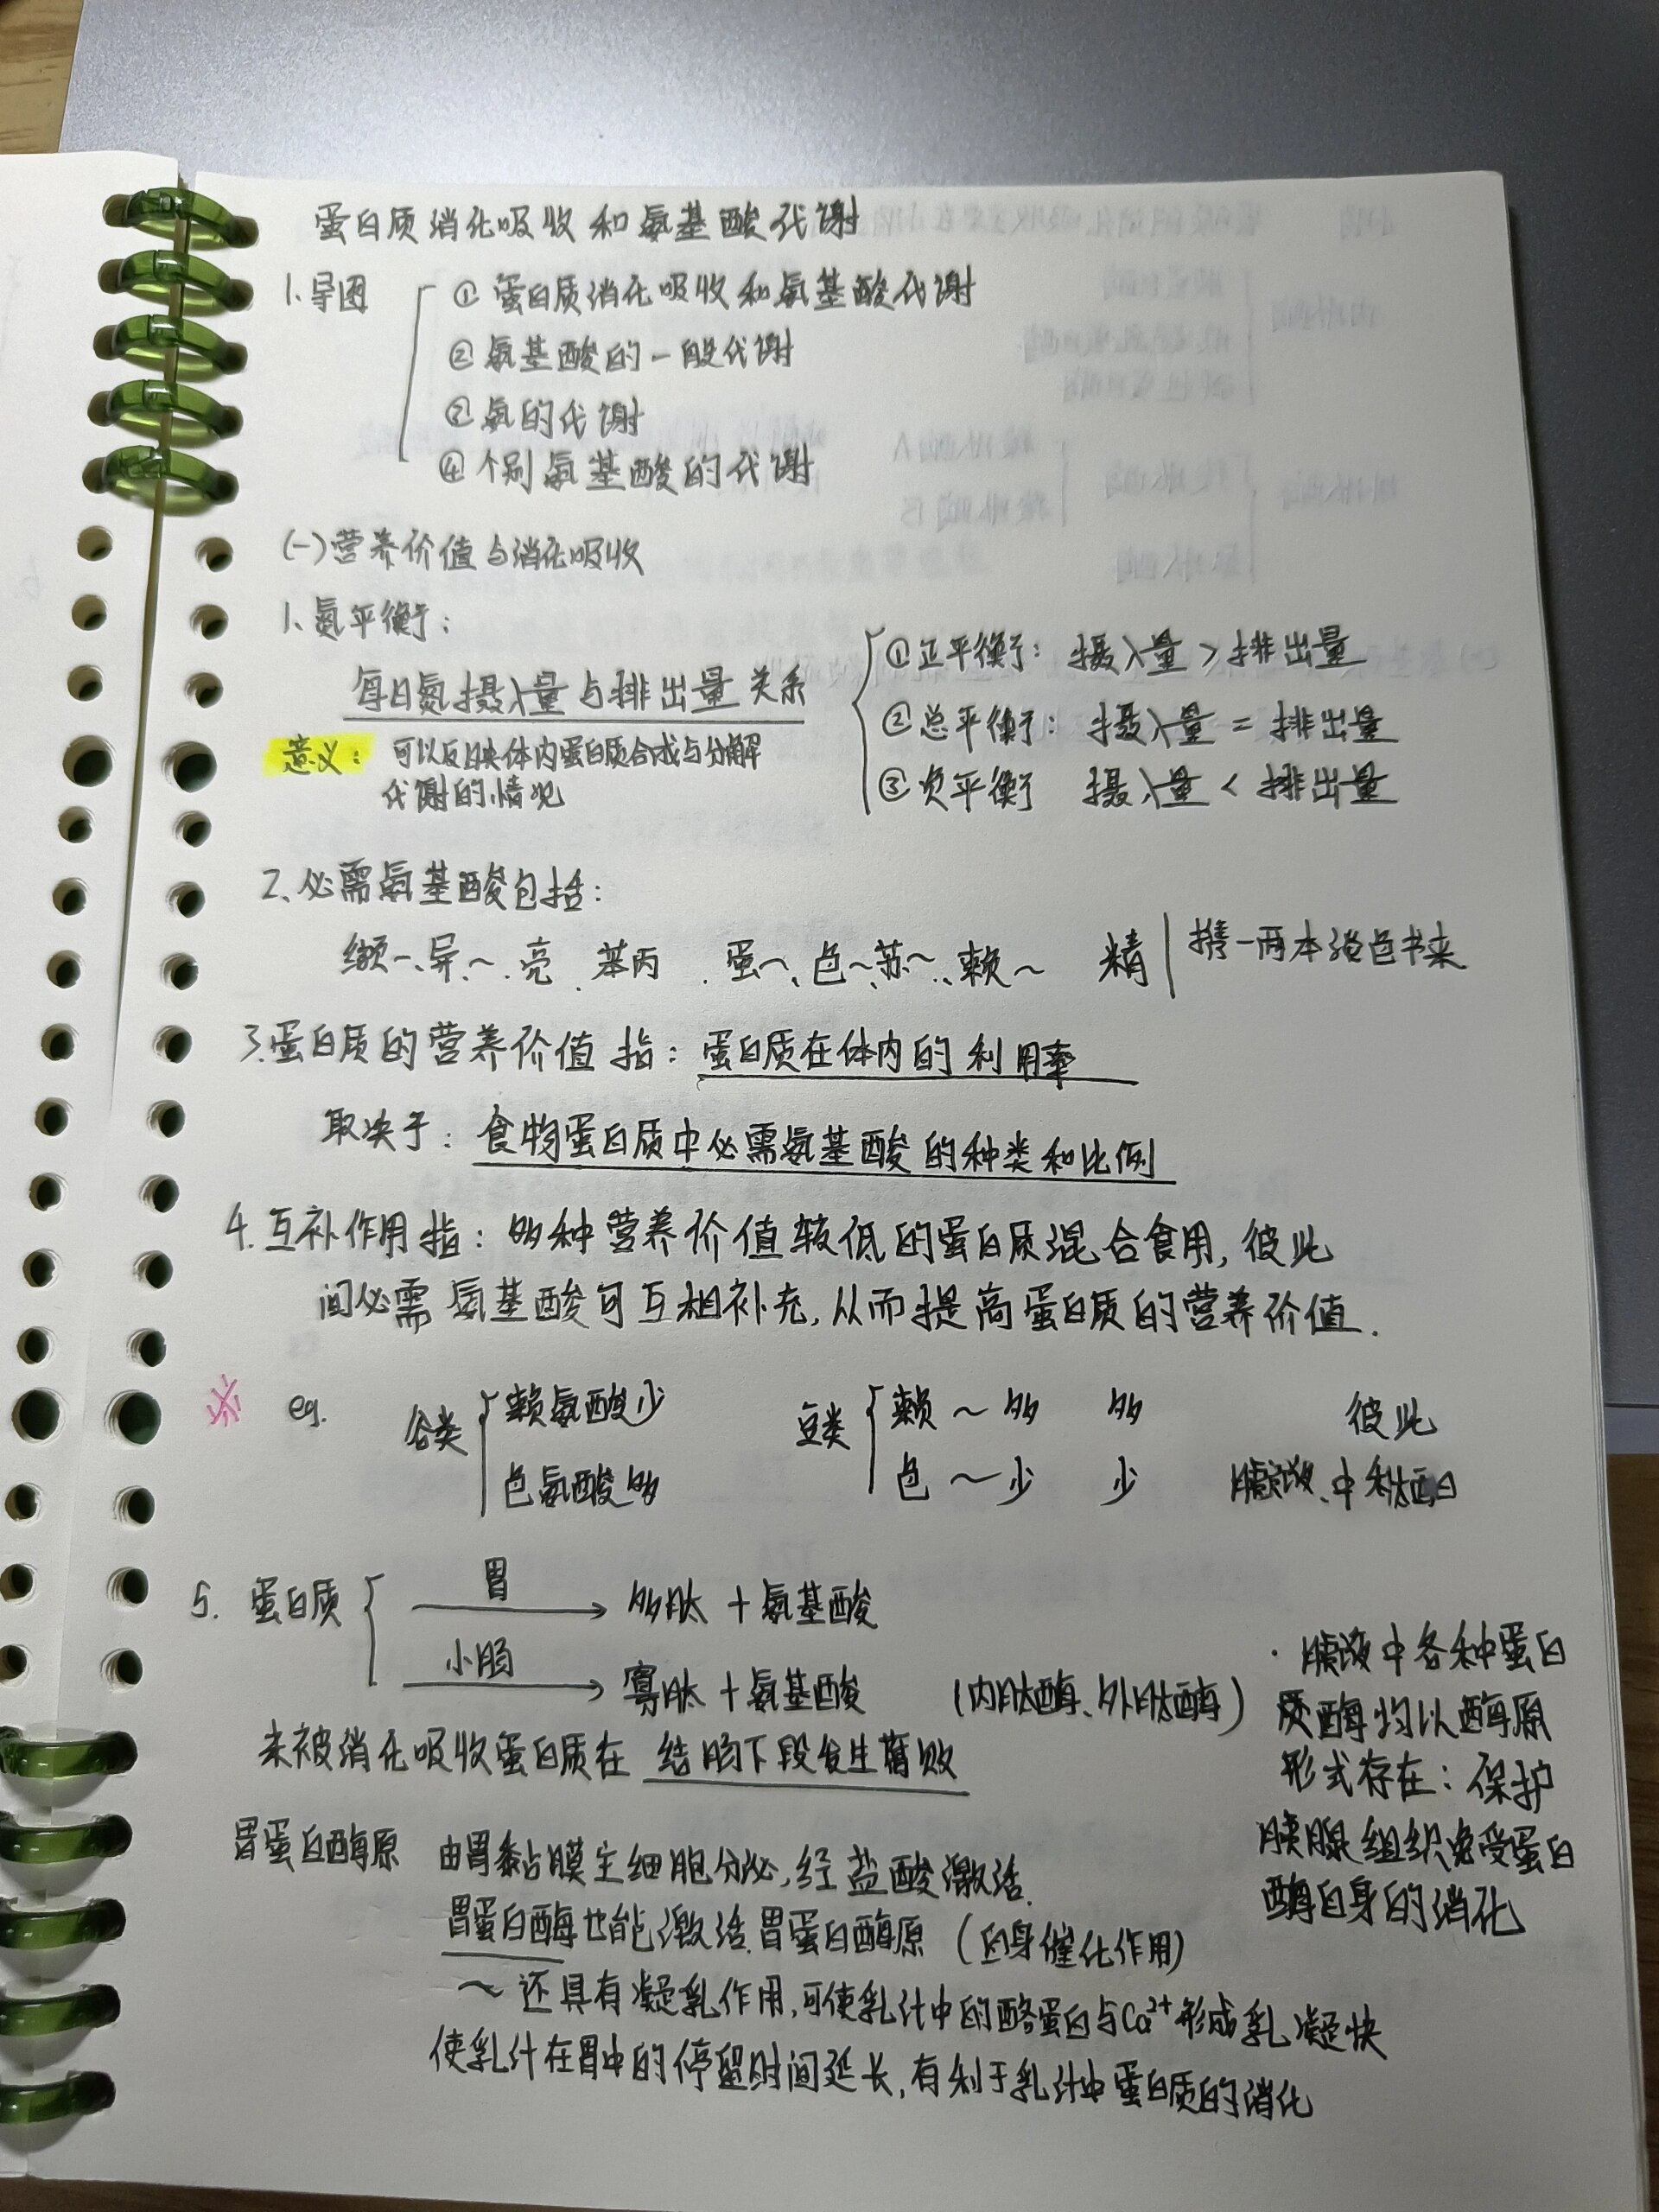 蛋白质消化吸收和氨基酸代谢
1.导图
① 蛋白质消化吸收和氨基酸代谢
② 氨基酸的一般代谢
② 氨的代谢
④ 个别氨基酸的代谢
(一)营养价值与消化吸收
1、氮平衡：
每日氮摄入量与排出量关系
意义：可以反映体内蛋白质合成与分解
代谢的情况
①正平衡：摄入量 > 排出量
②总平衡：摄入量 = 排出量
③负平衡 摄入量 < 排出量
2、必需氨基酸包括：
缬~、异~、亮、苯丙、蛋~、色~、苏~、赖~ 精 | 携一两本淡色书来
3.蛋白质的营养价值指：蛋白质在体内的利用率
取决于：食物蛋白质中必需氨基酸的种类和比例
4.互补作用指：多种营养价值较低的蛋白质混合食用，彼此
间必需氨基酸可互相补充，从而提高蛋白质的营养价值.
eg.
谷类
赖氨酸少
色氨酸多
豆类
赖~多 多
色~少 少
彼此
胰液、中
5. 蛋白质
胃
多肽 + 氨基酸
小肠
寡肽 + 氨基酸 (内肽酶、外肽酶)
未被消化吸收蛋白质在 结肠下段发生腐败
· 胰液中各种蛋白
质酶均以酶原
形式存在：保护
胰腺组织免受蛋白
酶自身的消化
胃蛋白酶原 由胃黏膜主细胞分泌，经盐酸激活.
胃蛋白酶也能激活胃蛋白酶原 (自身催化作用)
~ 还具有凝乳作用，可使乳汁中的酪蛋白与Ca²⁺形成乳凝快
使乳汁在胃中的停留时间延长，有利于乳汁中蛋白质的消化